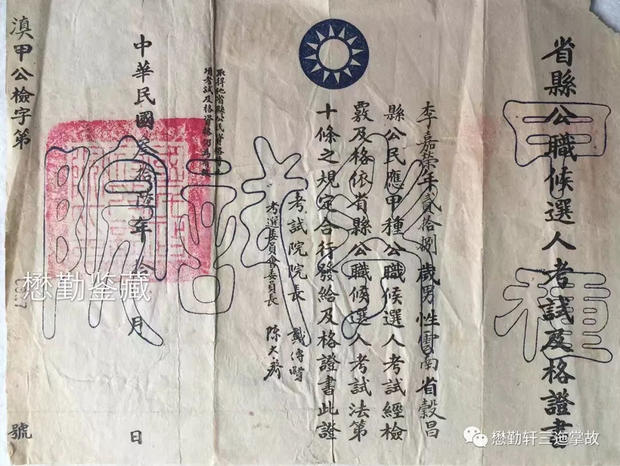 省縣公職候選人考試及格證書
甲種
李嘉榮年貳拾捌歲男性雲南省穀昌
縣公民應甲種公職候選人考試經檢
覈及格依省縣公職候選人考試法第
十條之規定合行發給及格證書此證
考試院院長 戴傳賢
考選委員會委員長 陳大齊
取得他省縣公民資格
項考試及格證書
中華民國叁拾陸年 月 日
滇甲公檢字第 號
懋勤鉴藏
懋勤轩三迤掌故